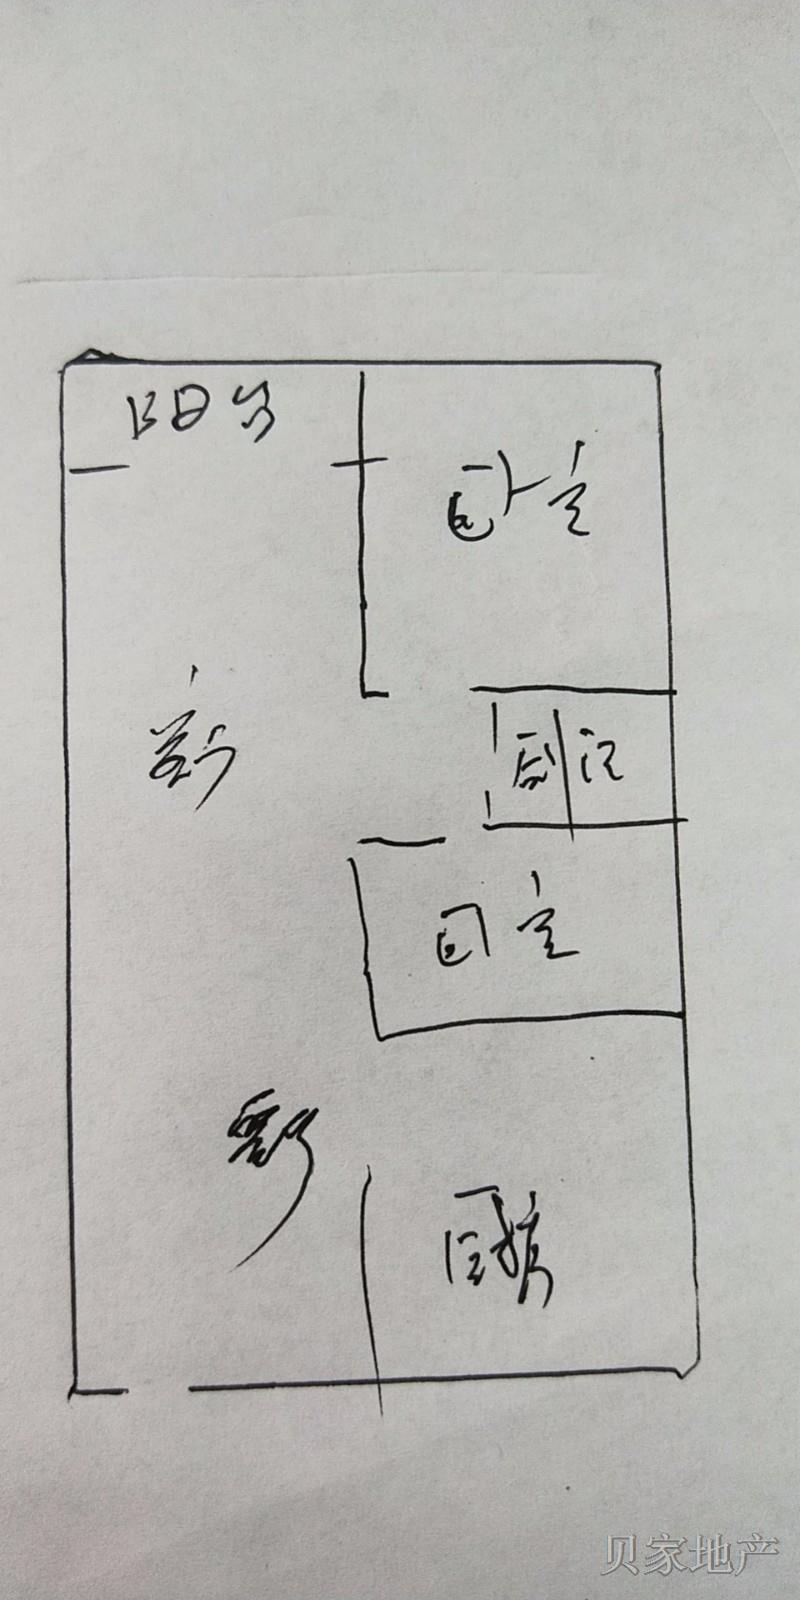 阳台
卧室
客厅
厕
卧室
餐厅
厨房
贝家地产